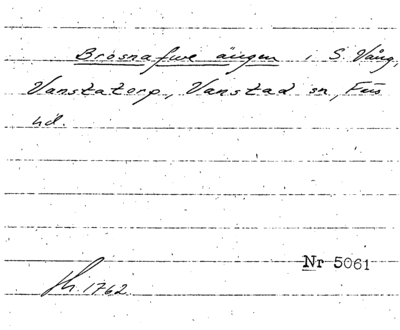 Brosnafwe ängen i S. Vång,
Vanstatorp, Vanstad sn, Färs
hd.
Nr 5061
Lh. 1762.